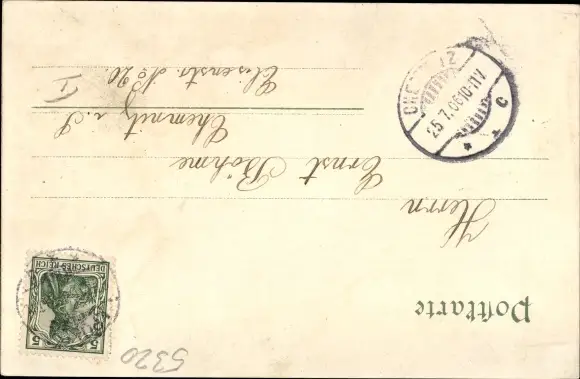 Postkarte
DEUTSCHES REICH
5 5
Herrn
Ernst Böhme
Chemnitz i. S
Elsenstr. No 20.
I
25.7.06 10-11V.
* c
5320